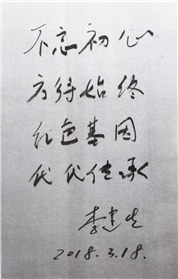 不忘初心
方得始终
红色基因
代代传承
李建生
2018.3.18.